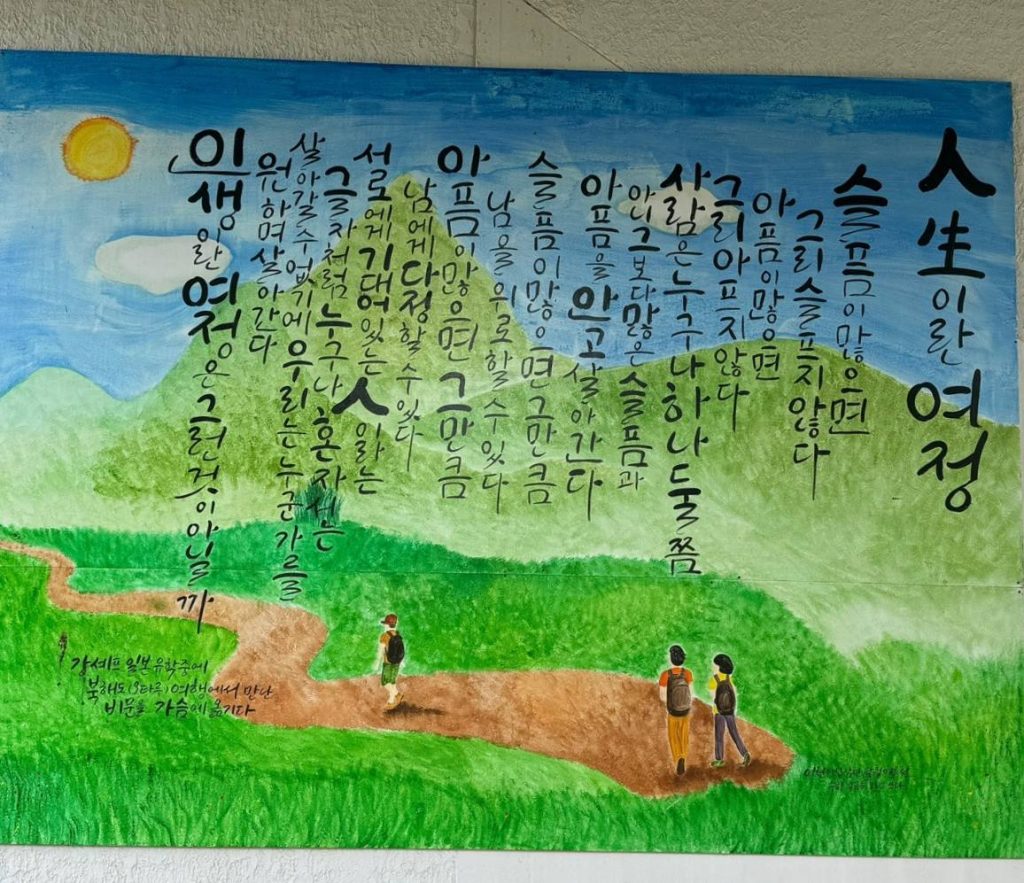 人生이란 여정
슬픔이 많으면
그리 슬프지 않다
아픔이 많으면
그리 아프지 않다
사람은 누구나 하나 둘쯤
아니 그보다 많은 슬픔과
아픔을 안고 살아간다
슬픔이 많으면 그만큼
남을 위로할 수 있다
아픔이 많으면 그만큼
남에게 다정할 수 있다
서로에게 기대어 있는 人이라는
글자처럼 누구나 혼자서는
살아갈 수 없기에 우리는 누군가를
원하며 살아간다
인생이란 여정은 그런 것이 아닐까
강셰프 일본 유학중에
북해도(오타루)여행에서 만난
비문을 가슴에 옮기다